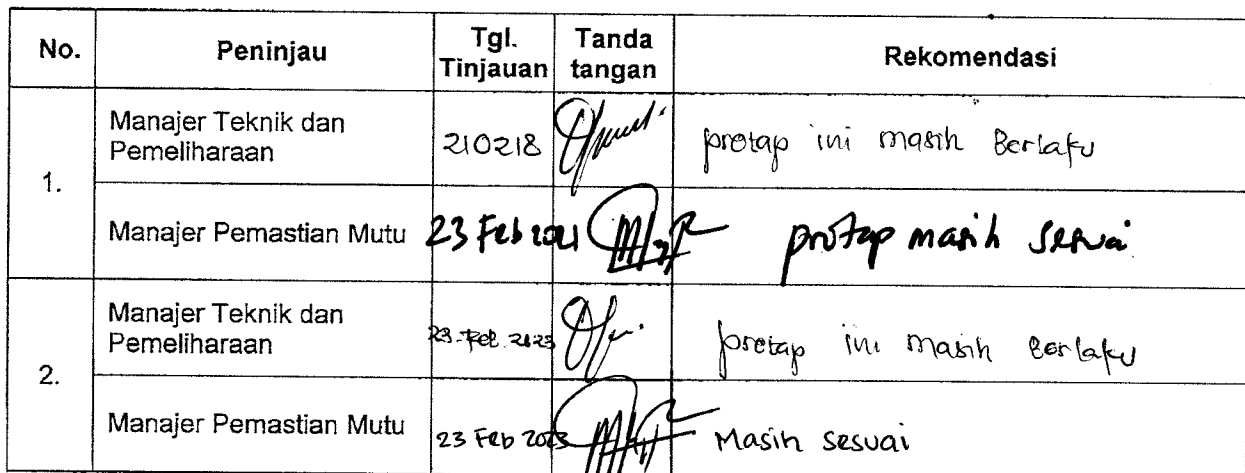 No. Peninjau Tgl. Tinjauan Tanda tangan Rekomendasi
1.
Manajer Teknik dan Pemeliharaan 210218 protap ini masih Berlaku
Manajer Pemastian Mutu 23 Feb 2021 protap masih sesuai
2.
Manajer Teknik dan Pemeliharaan 23-Feb-2023 protap ini masih berlaku
Manajer Pemastian Mutu 23 Feb 2023 Masih sesuai